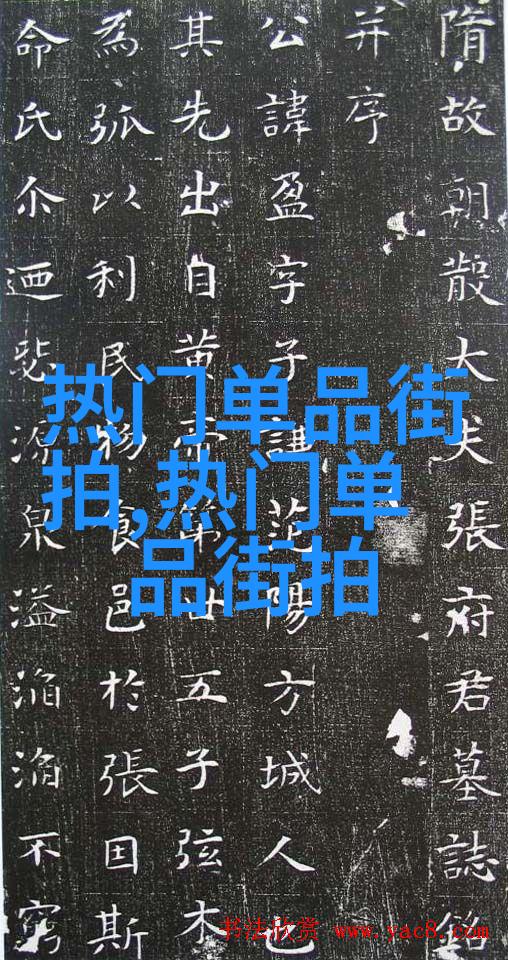 隋故朝散大夫張府君墓誌銘
并序
公諱盈字子謙范陽方城人也
其先出自黄帝第五子弦木
為弧以利民物食邑於張因斯
命氏尒迺源泉溢滔滔不窮
热门单品街
拍,热门单
品街拍
书法欣赏 www.yac8.com